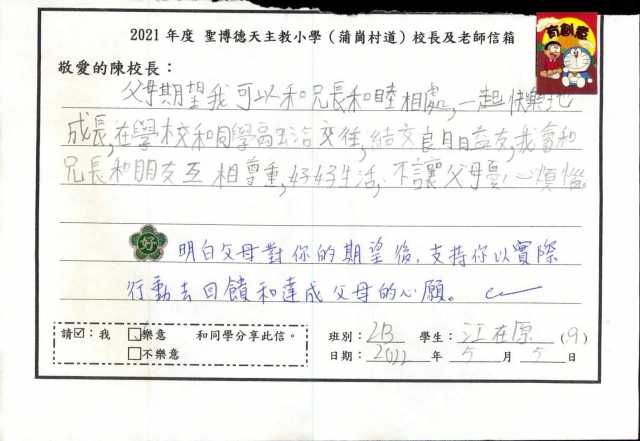 2021年度 聖博德天主教小學（蒲崗村道）校長及老師信箱
有創意
敬愛的陳校長：
父母期望我可以和兄長和睦相處，一起快樂地
成長，在學校和同學高上洽交往，結交良月日益友，我會和
兄長和朋友互相尊重，好好生活，不讓父母憂心煩惱。
好
明白父母對你的期望後，支持你以實際
行動去回饋和達成父母的心願。
請☑：我 □樂意 和同學分享此信。
□不樂意
班別：2B 學生：江在原(9)
日期：2022年5月5日